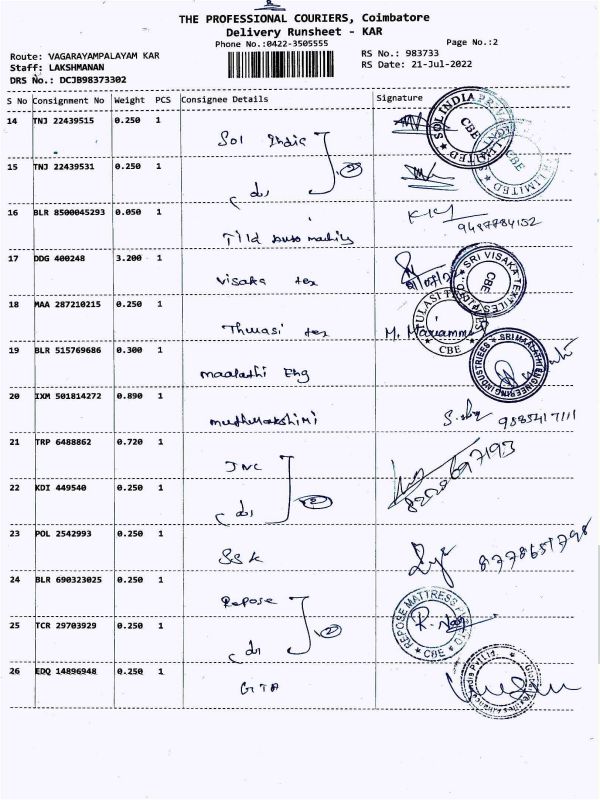 THE PROFESSIONAL COURIERS, Coimbatore
Delivery Runsheet - KAR
Phone No.:0422-3505555
Page No.:2
Route: VAGARAYAMPALAYAM KAR
RS No.: 983733
Staff: LAKSHMANAN
RS Date: 21-Jul-2022
DRS No.: DCJB98373302
S No Consignment No Weight PCS Consignee Details Signature
14 TNJ 22439515 0.250 1
Sol India
SOL INDIA PRIVATE LIMITED CBE
15 TNJ 22439531 0.250 1
2
do
16 BLR 8500045293 0.050 1
9487784152
17 DDG 400248 3.200 1
Visaka tex
SRI VISAKA TEXTILES CBE
18 MAA 287210215 0.250 1
Thulasi tex
M. Mariamma
CBE
19 BLR 515769686 0.300 1
maalathi Eng
SRI MAALATHI ENGINEERING INDUSTRIES
20 IXM 501814272 0.890 1
muthulakshimi
21 TRP 6488862 0.720 1
JNC
8220697193
22 KDI 449540 0.250 1
do
2
23 POL 2542993 0.250 1
SSK
24 BLR 690323025 0.250 1
Repose
REPOSE MATTRESS CBE
25 TCR 29703929 0.250 1
do
2
26 EDQ 14896948 0.250 1
GTA